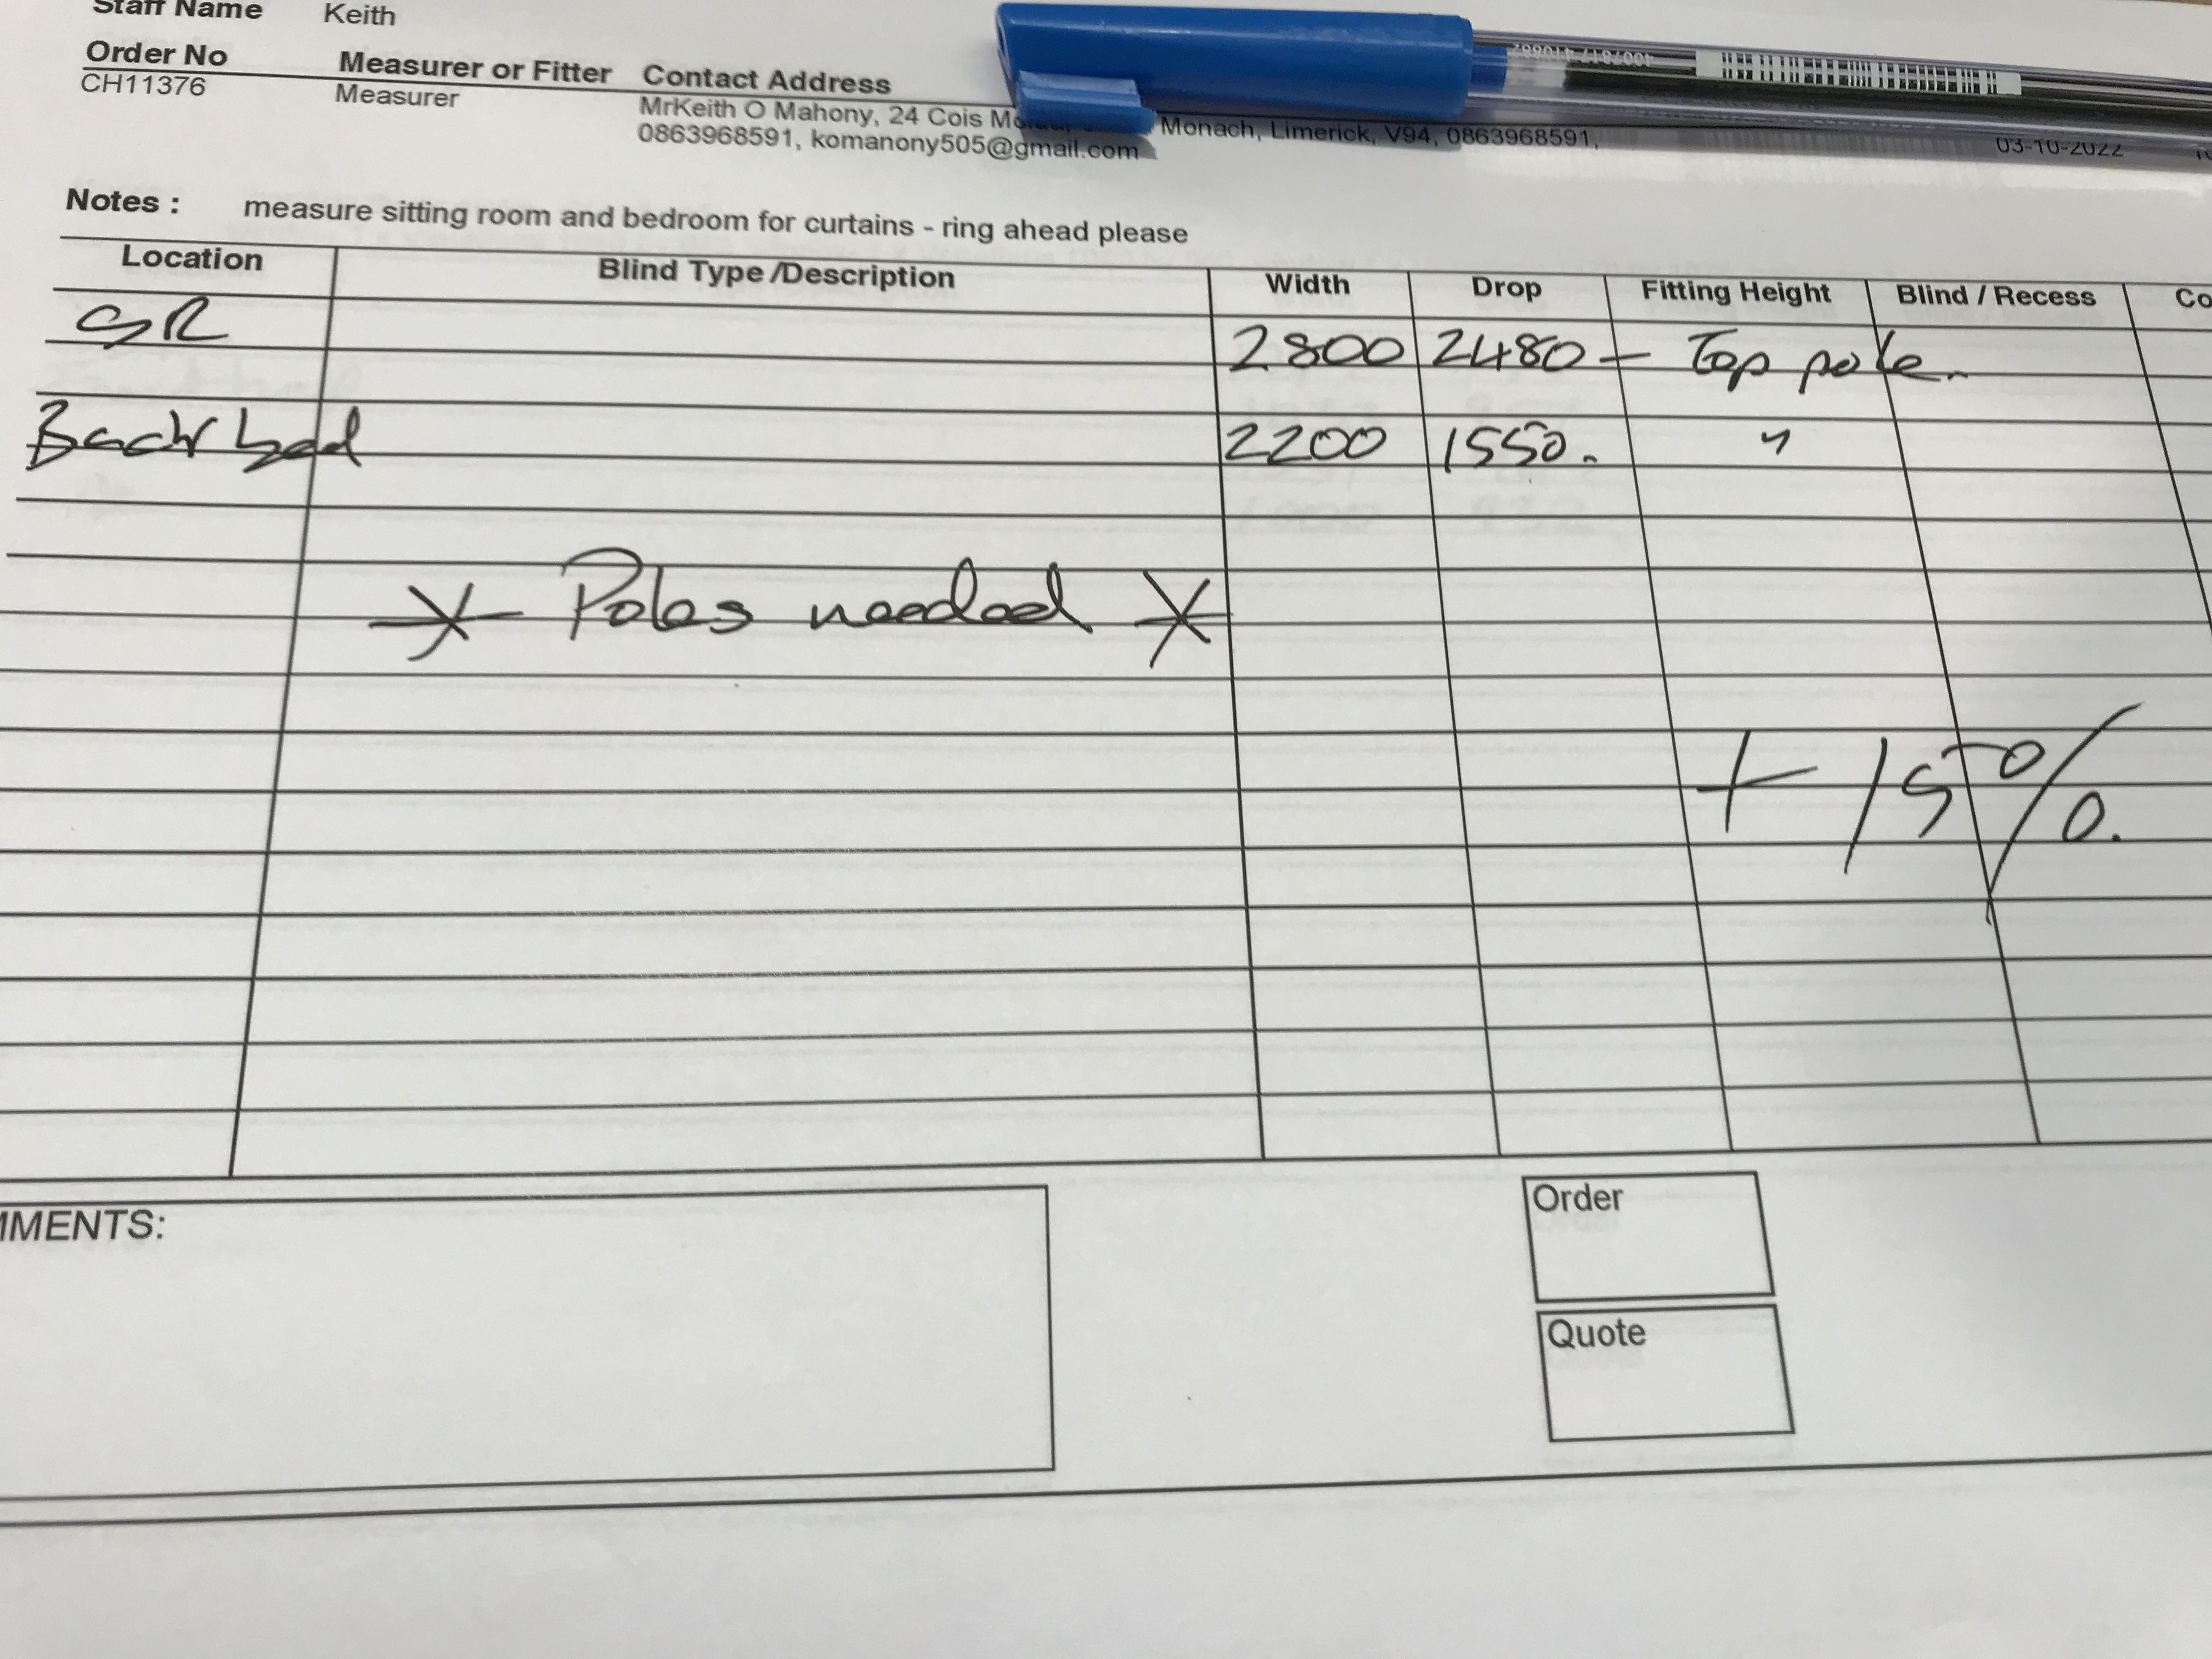 Staff Name Keith
Order No Measurer or Fitter Contact Address
CH11376 Measurer MrKeith O Mahony, 24 Cois Monach, Limerick, V94, 0863968591,
0863968591, komanony505@gmail.com 03-10-2022
Notes : measure sitting room and bedroom for curtains - ring ahead please
Location Blind Type /Description Width Drop Fitting Height Blind / Recess Co
SR 2800 2480 - Top pole.
Back bed 2200 1550. "
* Poles needed *
+ 15%.
MMENTS:
Order
Quote